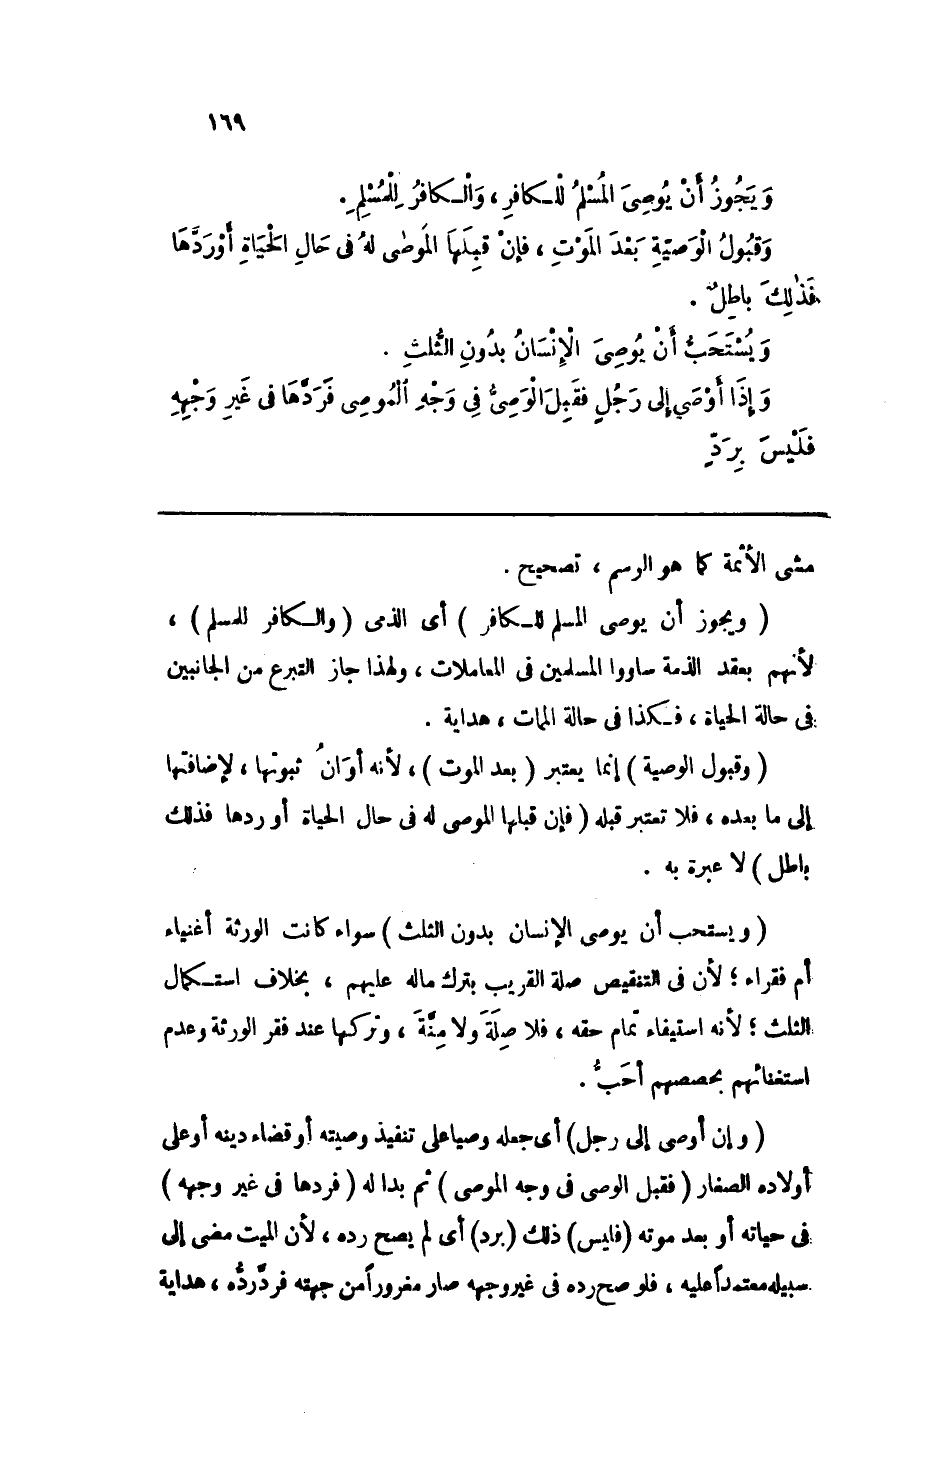 ١٦٩
وَيَجُوزُ أَنْ يُوصِىَ المُسْلِمُ لِلْـكافِرِ ، وَالْـكافِرُ لِلْمُسْلِمِ .
وَقَبُولُ الْوَصيَّةِ بَعْدَ المَوْتِ ، فإنْ قبِلَهاَ المُوصٰى لهُ فى حَالِ الحْيَاةِ أَوْ رَدَّهَا
فَذٰلِكَ باطِلٌ .
وَيُسْتَحَبُّ أَنْ يُوصِىَ الْإِنْسَانُ بدُونِ الثُّلثِ .
وَإِذَا أَوْصَى إلى رَجُلٍ فقَبِلَ الْوَصِىُّ فِى وَجْهِ الْمُوصِى فَرَدَّهَا فى غَيرِ وَجْهِهِ
فلَيْسَ بِرَدٍّ
مشى الأئمة كما هو الرسم ، تصحيح .
( ويجوز أن يوصى المسلم للـكافر ) أى الذمى ( والـكافر للمسلم ) ،
لأنهم بعقد الذمة ساووا المسلمين فى المعاملات ، ولهذا جاز التبرع من الجانبين
فى حالة الحياة ، فـكذا فى حالة الممات ، هداية .
( وقبول الوصية ) إنما يعتبر ( بعد الموت ) ، لأنه أوَانُ ثبوتها ، لإضافتها
إلى ما بعده ، فلا تعتبر قبله ( فإن قبلها الموصى له فى حال الحياة أو ردها فذلك
باطل ) لا عبرة به .
( ويستحب أن يوصى الإنسان بدون الثلث ) سواء كانت الورثة أغنياء
أم فقراء ؛ لأن فى التنقيص صلة القريب بترك ماله عليهم ، بخلاف استـكمال
الثلث ؛ لأنه استيفاء تمام حقه ، فلا صِلَةَ ولا مِنَّةَ ، وتركها عند فقر الورثة وعدم
استغنائهم بحصصهم أحَبُّ .
( وإن أوصى إلى رجل ) أى جعله وصيا على تنفيذ وصيته أو قضاء دينه أو على
أولاده الصغار ( فقبل الوصى فى وجه الموصى ) ثم بدا له ( فردها فى غير وجهه )
فى حياته أو بعد موته ( فليس ) ذلك ( برد ) أى لم يصح رده ، لأن الميت مضى إلى
سبيله معتمداً عليه ، فلو صح رده فى غير وجهه صار مغروراً من جهته فردَّ ردُّه ، هداية